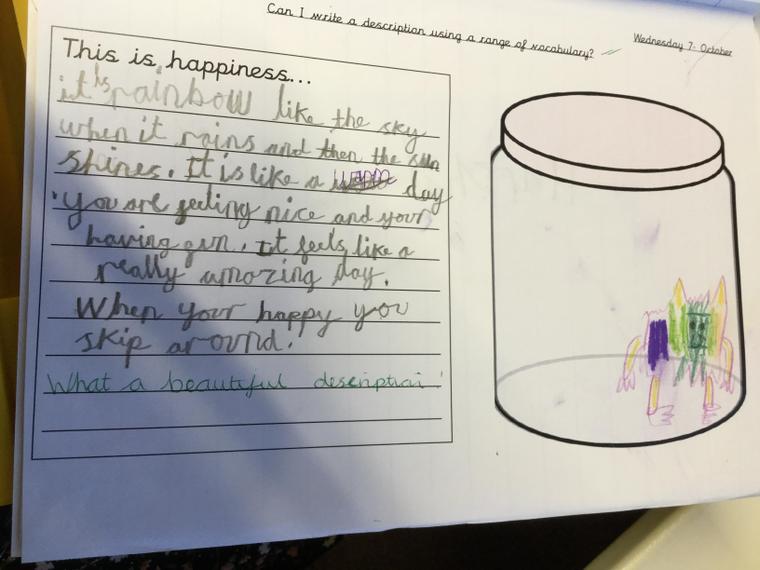 Can I write a description using a range of vocabulary?
Wednesday 7th October
This is happiness...
it is rainbow like the sky
when it rains and then the sun
shines. It is like a day
you are feeling nice and your
having fun. It feels like a
really amazing day.
When your happy you
skip around.
What a beautiful description!